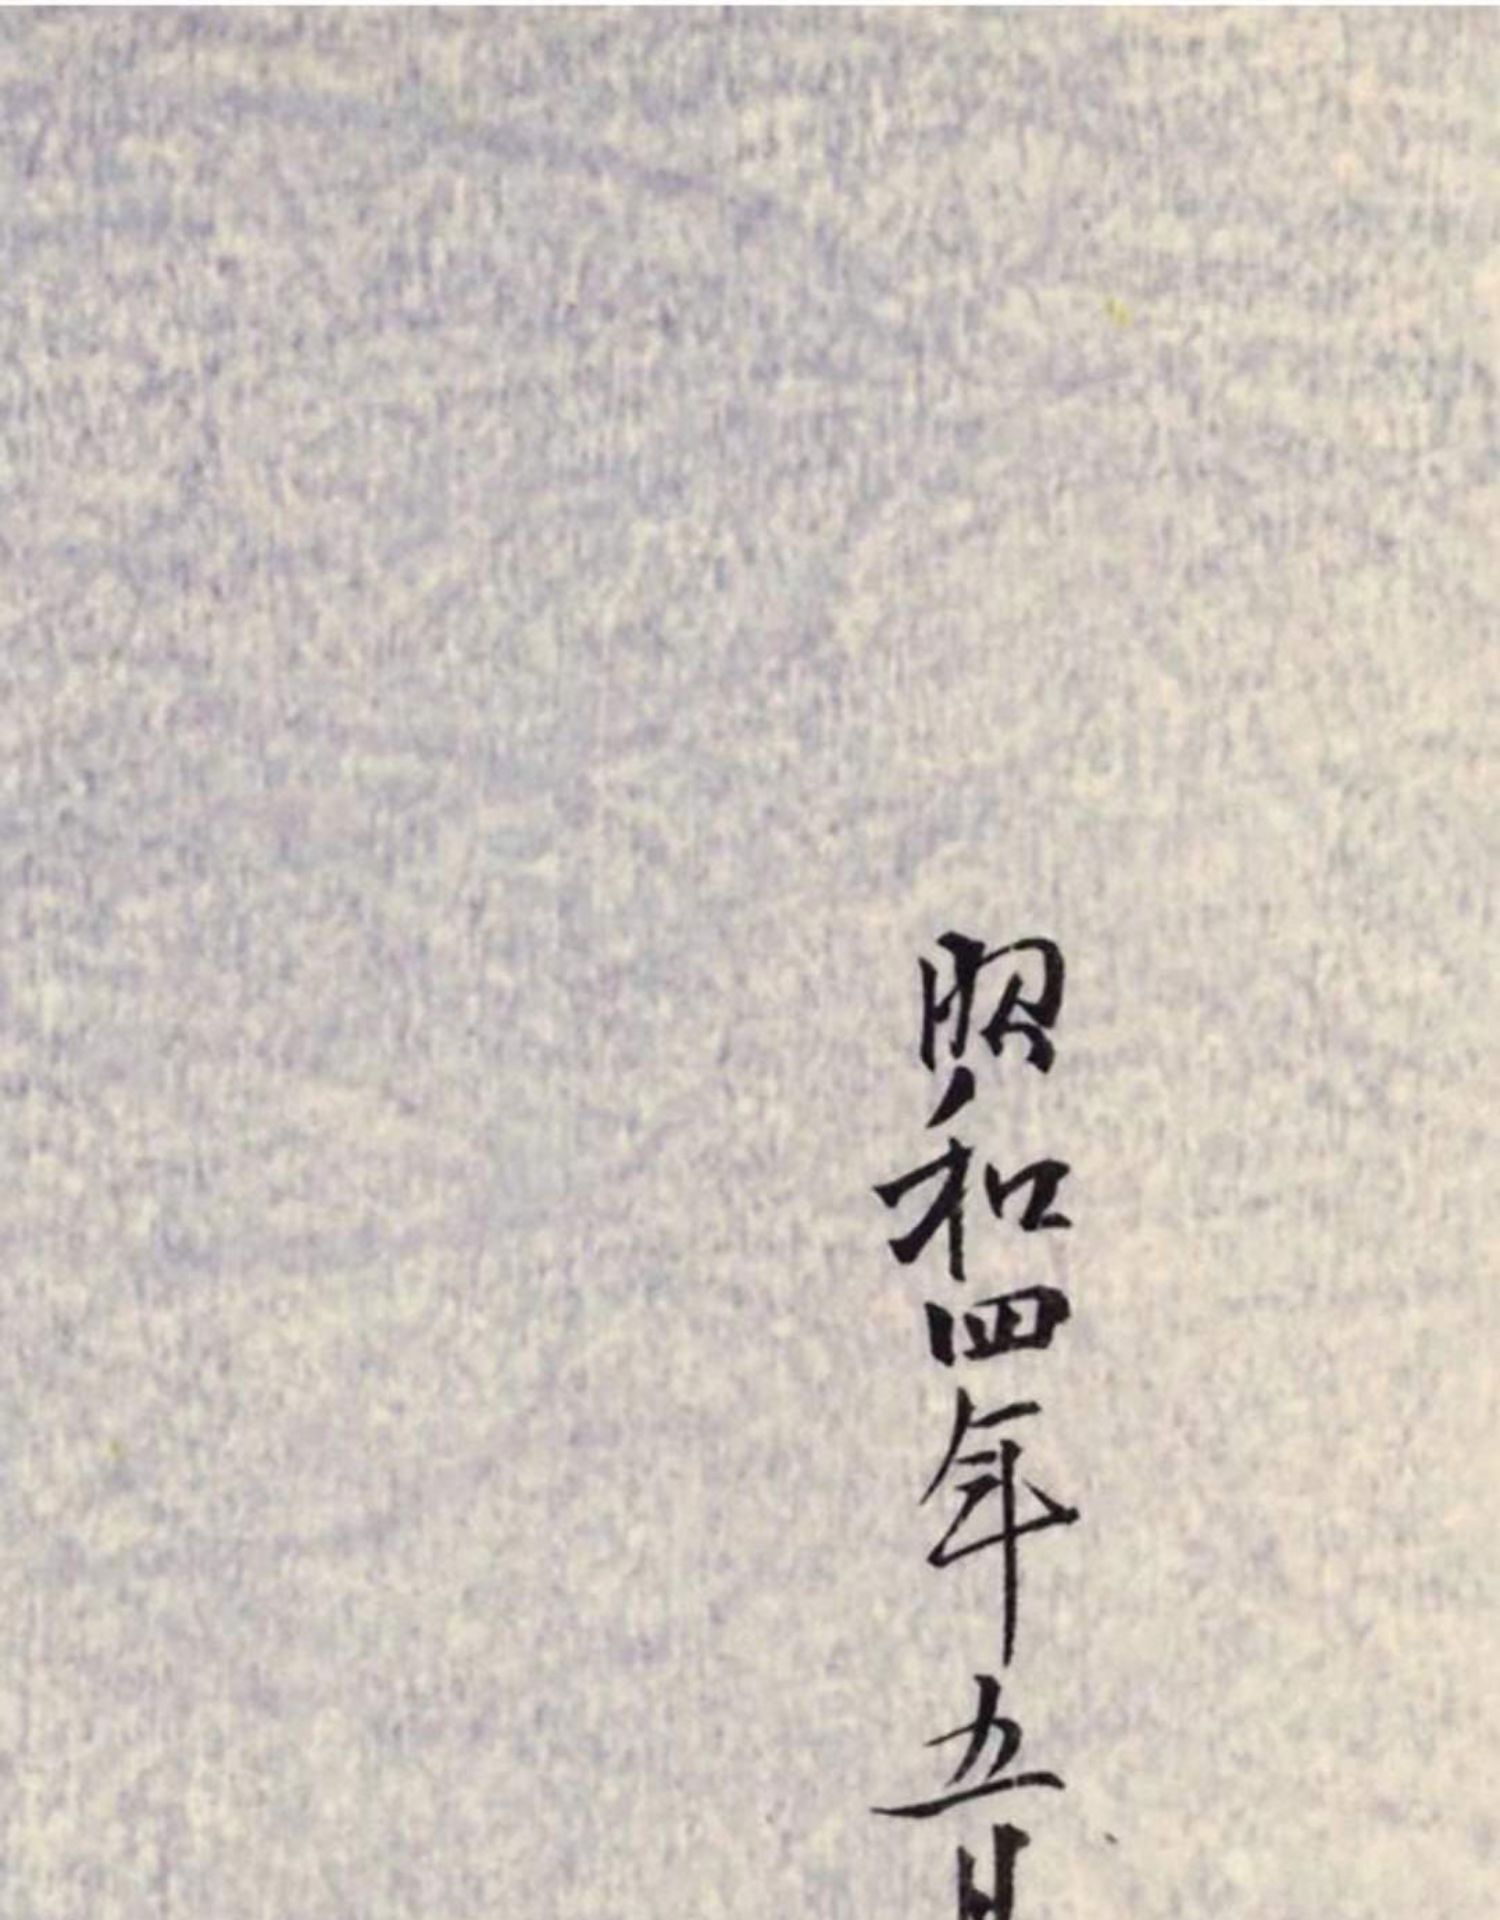 昭和四年五月